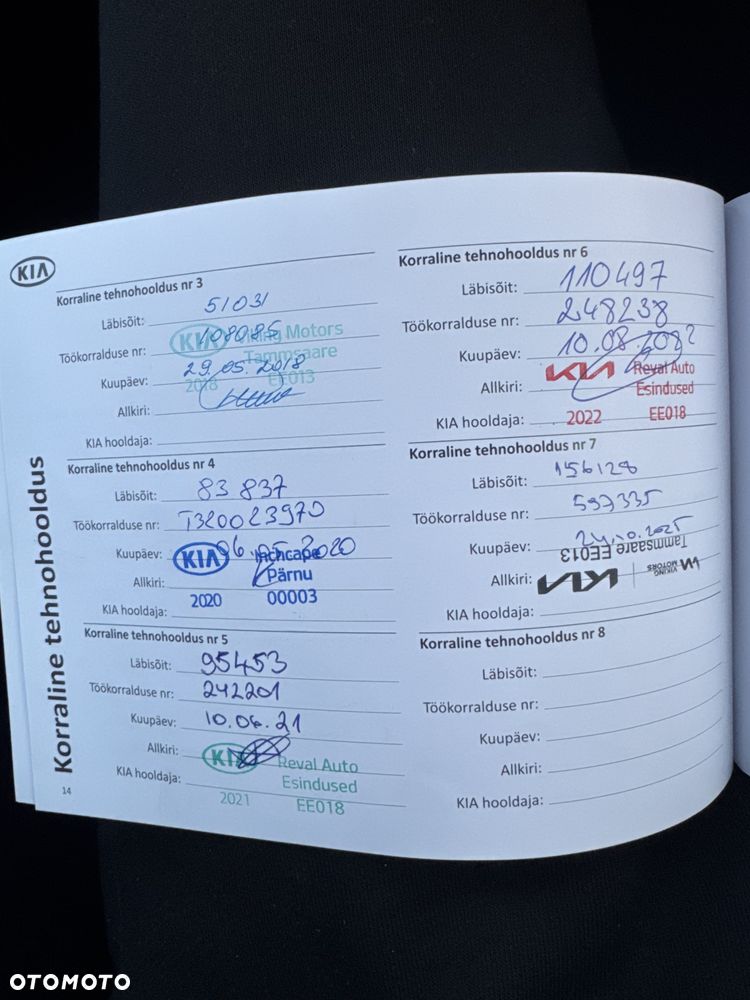 KIA
Korraline tehnohooldus
Korraline tehnohooldus nr 3
Läbisõit: 51031
Töökorralduse nr: 108085
KIA Viking Motors
Tammsaare
Kuupäev: 29.05.2018
2018 EE013
Allkiri:
KIA hooldaja:
Korraline tehnohooldus nr 4
Läbisõit: 83 837
Töökorralduse nr: T320023970
Kuupäev: 06.05.2020
KIA Inchcape
Pärnu
Allkiri:
KIA hooldaja: 2020 00003
Korraline tehnohooldus nr 5
Läbisõit: 95453
Töökorralduse nr: 242201
Kuupäev: 10.06.21
Allkiri: KIA Reval Auto
Esindused
KIA hooldaja:
2021 EE018
14
Korraline tehnohooldus nr 6
Läbisõit: 110497
Töökorralduse nr: 248238
Kuupäev: 10.08.2022
KIA Reval Auto
Allkiri: Esindused
KIA hooldaja: 2022 EE018
Korraline tehnohooldus nr 7
Läbisõit: 156128
Töökorralduse nr: 597335
Kuupäev: 24.10.2025
Tammsaare EE013
Allkiri: KIA VIKING MOTORS
KIA hooldaja:
Korraline tehnohooldus nr 8
Läbisõit:
Töökorralduse nr:
Kuupäev:
Allkiri:
KIA hooldaja:
OTOMOTO